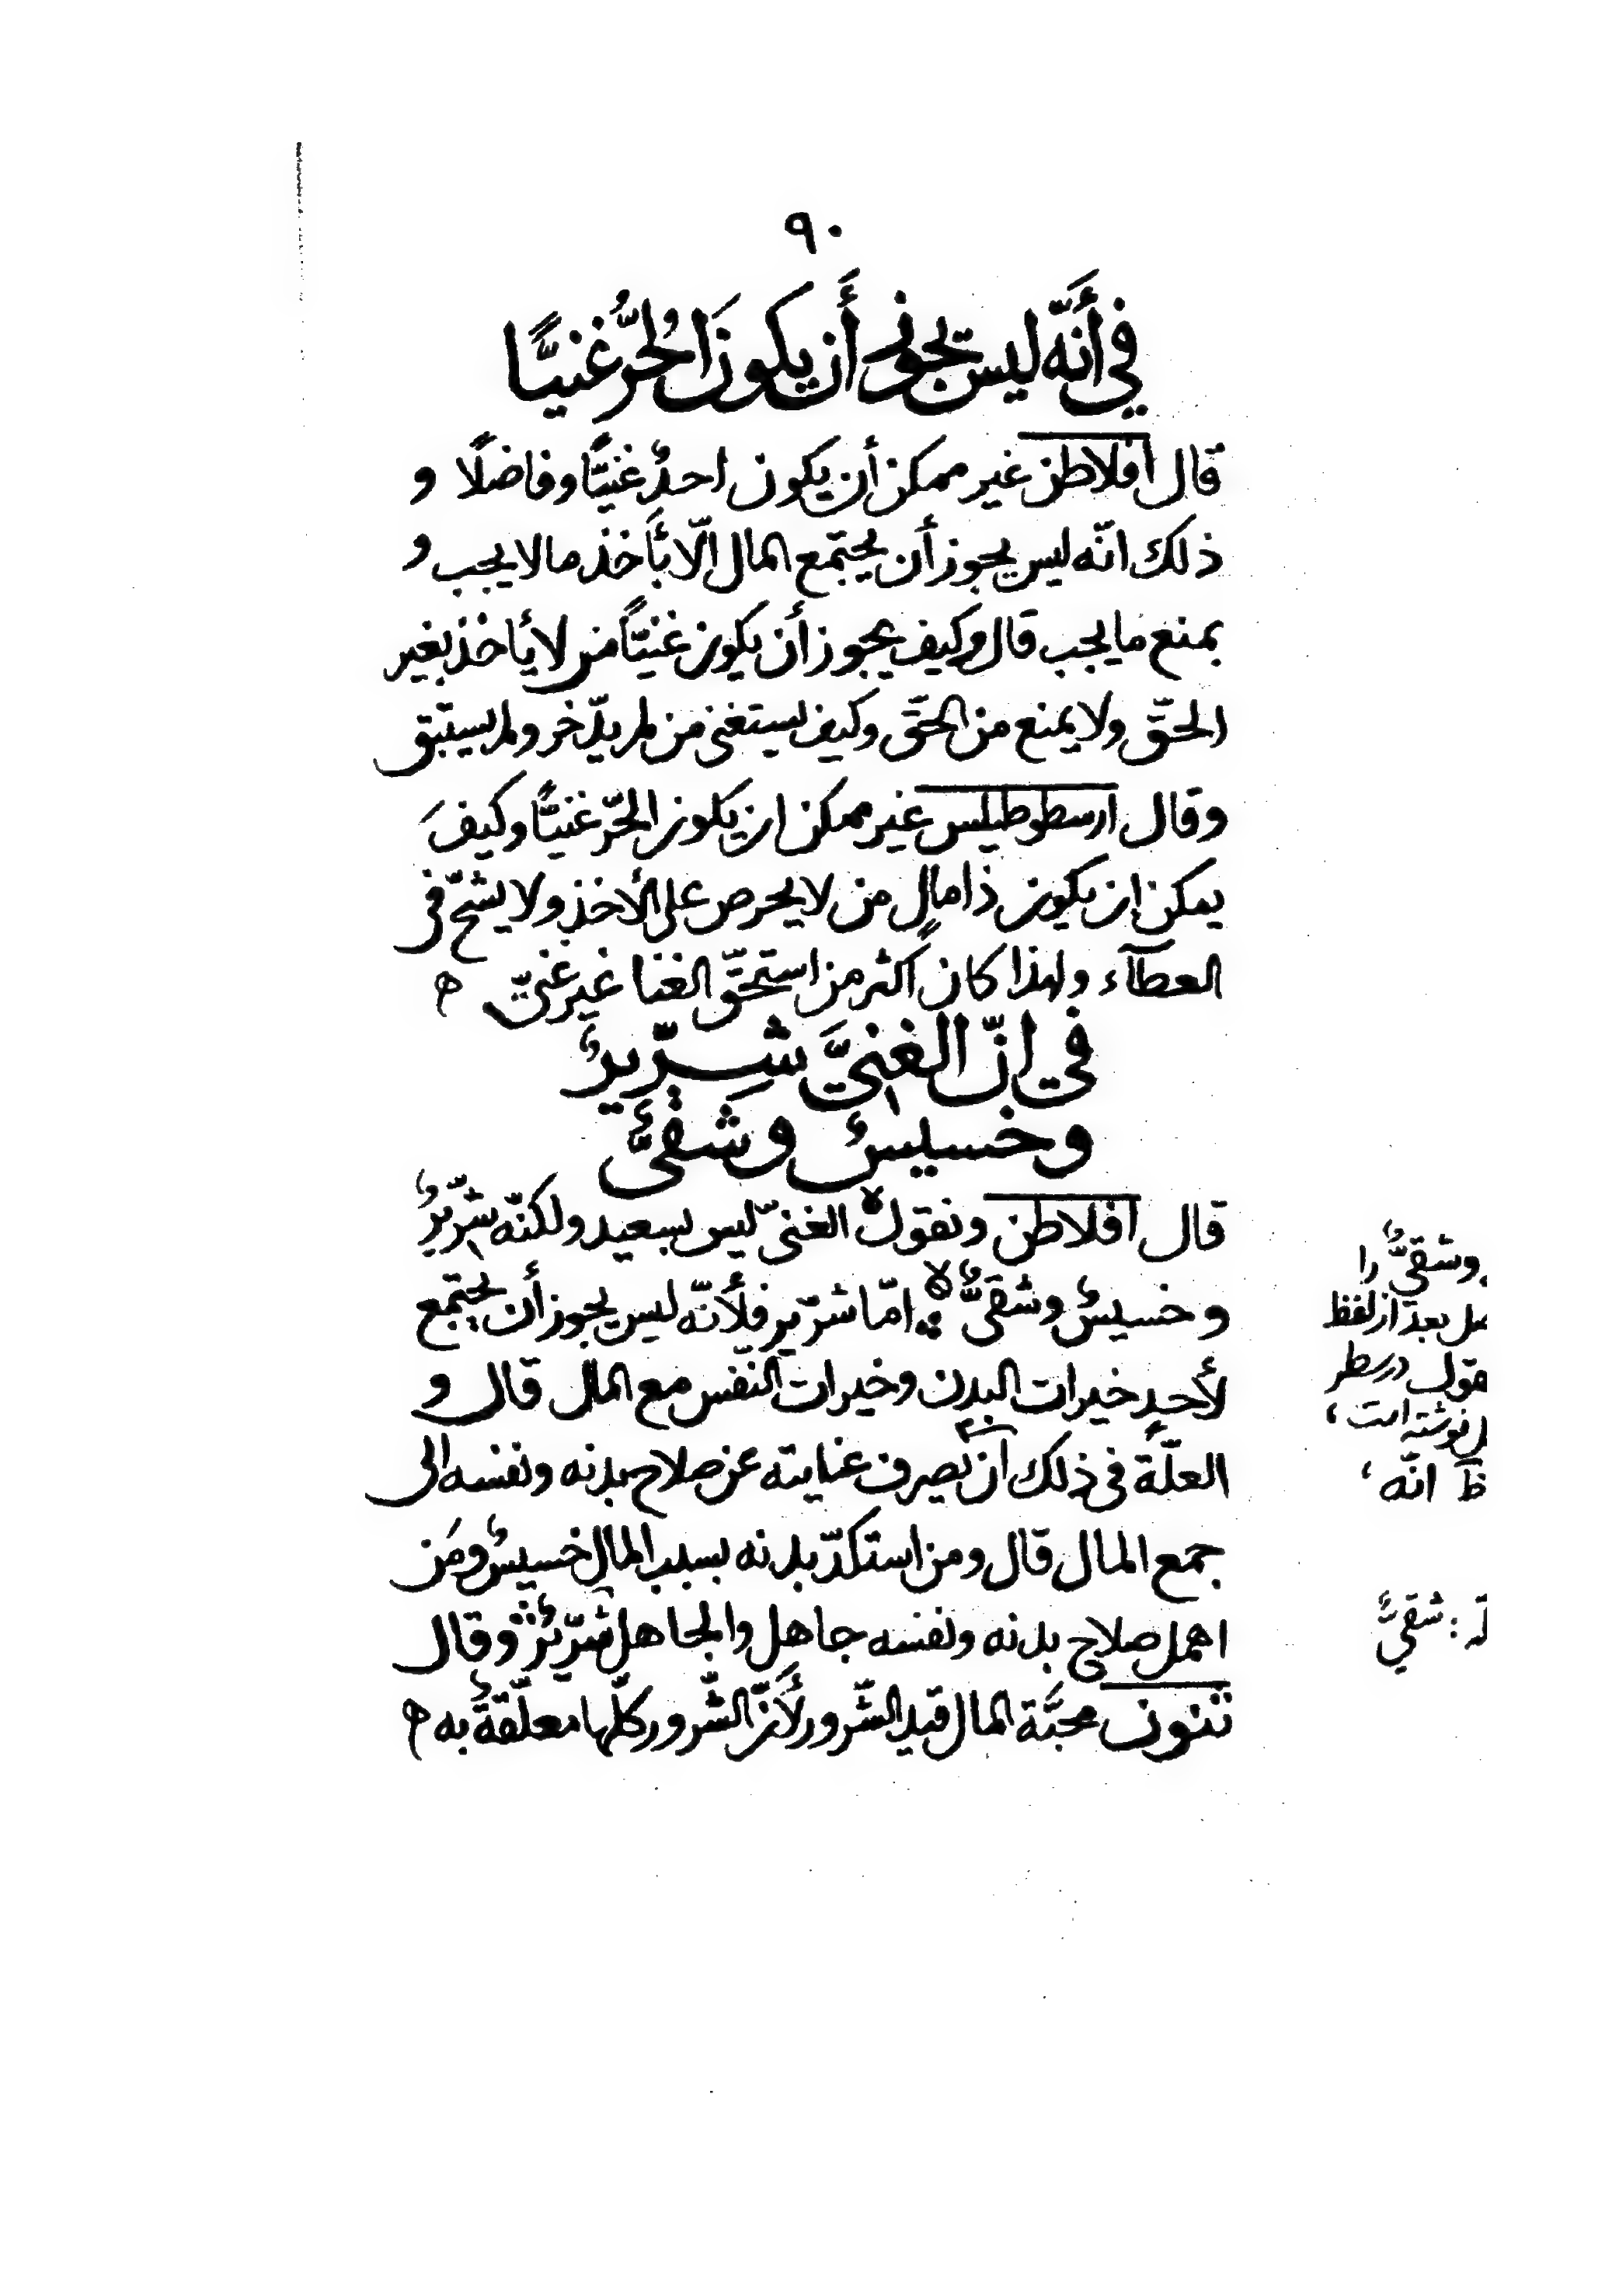 ٩٠
في أَنَّه ليس يجوز أَن يكونَ الحُرُّ غنيًّا
قال افلاطن غير ممكن أن يكون احدٌ غنيًّا وفاضلًا و
ذلك انّه ليس يجوز أن يجتمع المال الّا بأَخذ ما لا يجب و
بمنع ما يجب قال وكيف يجوز أن يكون غنيًّا من لا يأخذ بغير
الحقّ ولا يمنع من الحقّ وكيف يستغنى من لم يدّخر ولم يستبق
وقال ارسطوطيلس غير ممكن ان يكون الحرّ غنيًّا وكيفَ
يمكن ان يكون ذا مالٍ من لا يحرص على الأخذ ولا يشحّ فى
العطآء ولهذا كان أكثر من استحقّ الغنا غير غنىّ ه
فى انّ الغنىَّ شِرّيرٌ
وخسيسٌ وشقىٌّ
قال افلاطن ونقول الغنىّ ليس بسعيد ولكنّه شرّيرٌ
وخسيسٌ وشقىٌّ امّا شرّير فلأنّه ليس يجوز أن يجتمع
لأحدٍ خيرات البدن وخيرات النّفس مع المال قال و
العلّة فى ذلك ان يصرف عنايته عن صلاح بدنه ونفسه الى
جمع المال قال ومن استكدّ بدنه بسبب المال خسيسٌ ومَن
اهمل صلاح بدنه ونفسه جاهل والجاهل شرّيرٌ وقال
ثنون محبّة المال قيد الشّرور لأَنّ الشّرور كلّها معلّقةٌ به ه
وشقىٌّ را
بعد از لفظ
در سطر
نوشته است،
ظ انّه،
: شقيٌّ